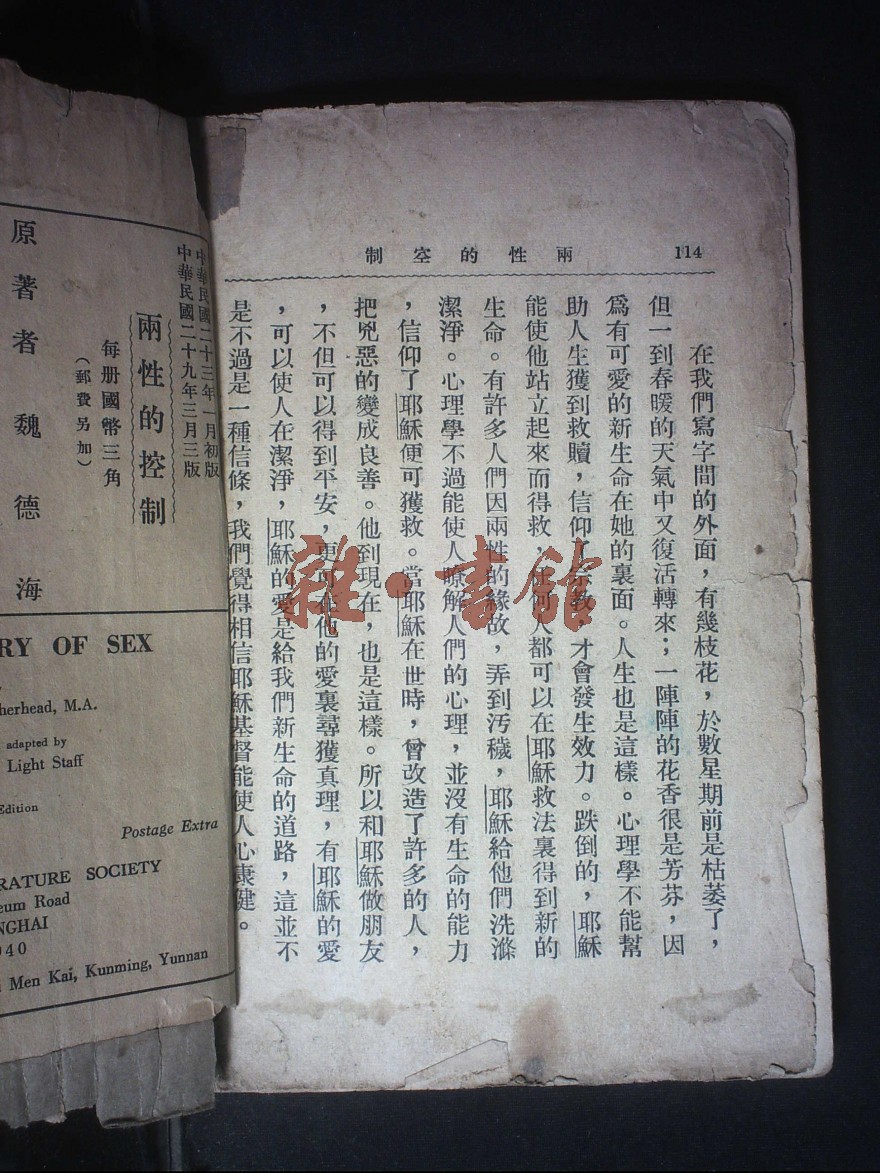 114
兩性的空制
在我們寫字間的外面，有幾枝花，於數星期前是枯萎了，
但一到春暖的天氣中又復活轉來；一陣陣的花香很是芳芬，因
爲有可愛的新生命在她的裏面。人生也是這樣。心理學不能幫
助人生獲到救贖，信仰了宗教，才會發生效力。跌倒的，耶穌
能使他站立起來而得救，任何人都可以在耶穌救法裏得到新的
生命。有許多人們因兩性的緣故，弄到汚穢，耶穌給他們洗滌
潔淨。心理學不過能使人瞭解人們的心理，並沒有生命的能力
，信仰了耶穌便可獲救。當耶穌在世時，曾改造了許多的人，
把兇惡的變成良善。他到現在，也是這樣。所以和耶穌做朋友
，不但可以得到平安，更可在他的愛裏尋獲真理，有耶穌的愛
，可以使人在潔淨，耶穌的愛是給我們新生命的道路，這並不
是不過是一種信條，我們覺得相信耶穌基督能使人心康健。
中華民國二十三年一月初版
中華民國二十九年三月三版
兩性的控制
每册國幣三角
（郵費另加）
原著者魏德海
RY OF SEX
herhead, M.A.
adapted by
Light Staff
Edition
Postage Extra
RATURE SOCIETY
eum Road
NGHAI
940
Men Kai, Kunming, Yunnan
雜·書館